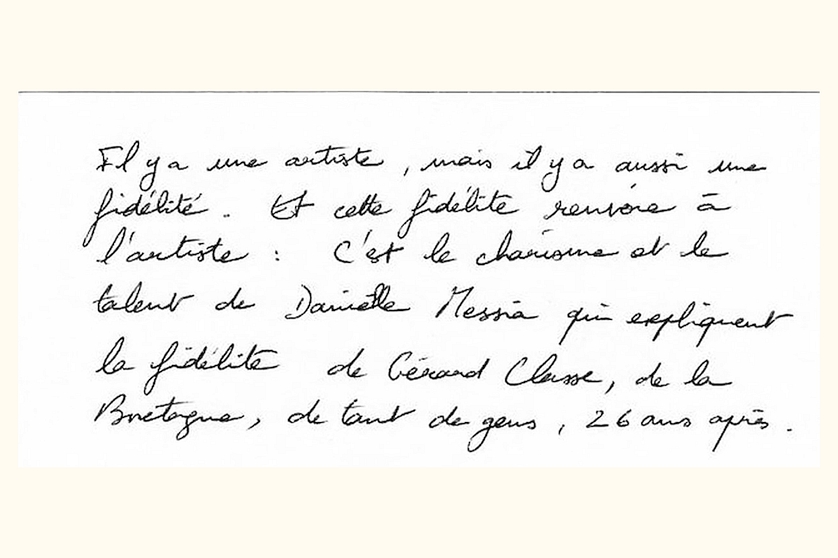 Il y a une artiste, mais il y a aussi une
fidélité. Et cette fidélité renvoie à
l'artiste : C'est le charisme et le
talent de Danielle Messia qui expliquent
la fidélité de Gérard Classe, de la
Bretagne, de tant de gens, 26 ans après.